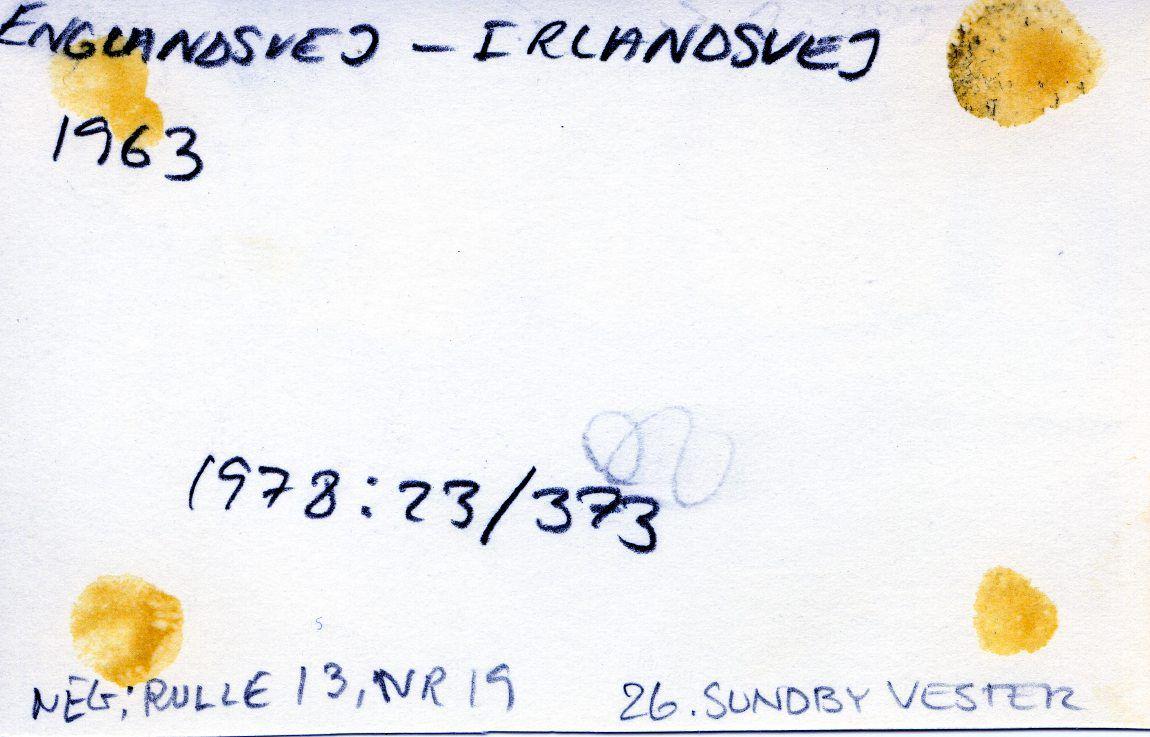 ENGLANDSVEJ – IRLANDSVEJ
1963
1978:23/373
NEG: RULLE 13, NR 19
26. SUNDBY VESTER